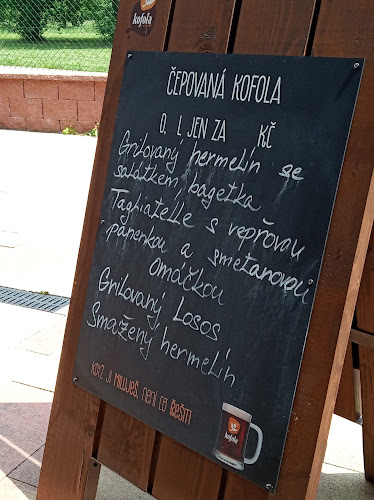 kofola
kofola
ČEPOVANÁ KOFOLA
0, L JEN ZA KČ
Grilovaný hermelín se
salátkem bagetka
Tagliatelle s vepřovou
panenkou a smetanovou
omáčkou
Grilovaný Losos
Smažený hermelín
KDYŽ JI MILUJEŠ, NENÍ CO ŘEŠIT!
kofola